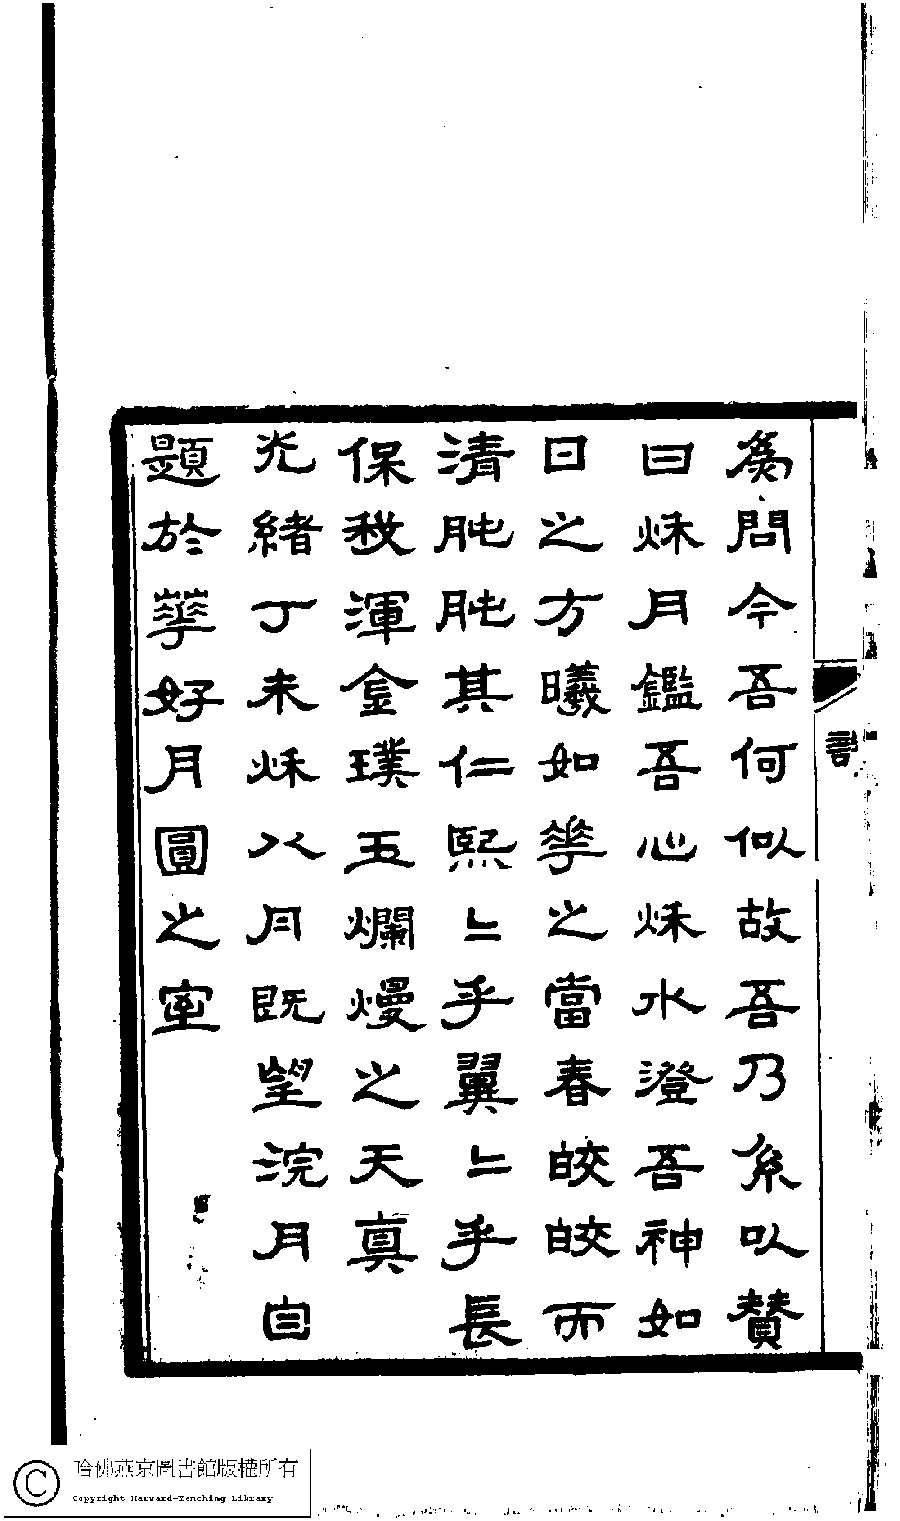 為問今吾何似故吾乃系以贊
曰秌月鑑吾心秌水澄吾神如
日之方曦如華之當春皎皎而
清肫肫其仁熙〻乎翼〻乎長
保我渾金璞玉爛熳之天真
光緒丁未秌八月既望浣月自
題於華好月圓之室
哈佛燕京圖書館版權所有
Copyright Harvard-Yenching Library